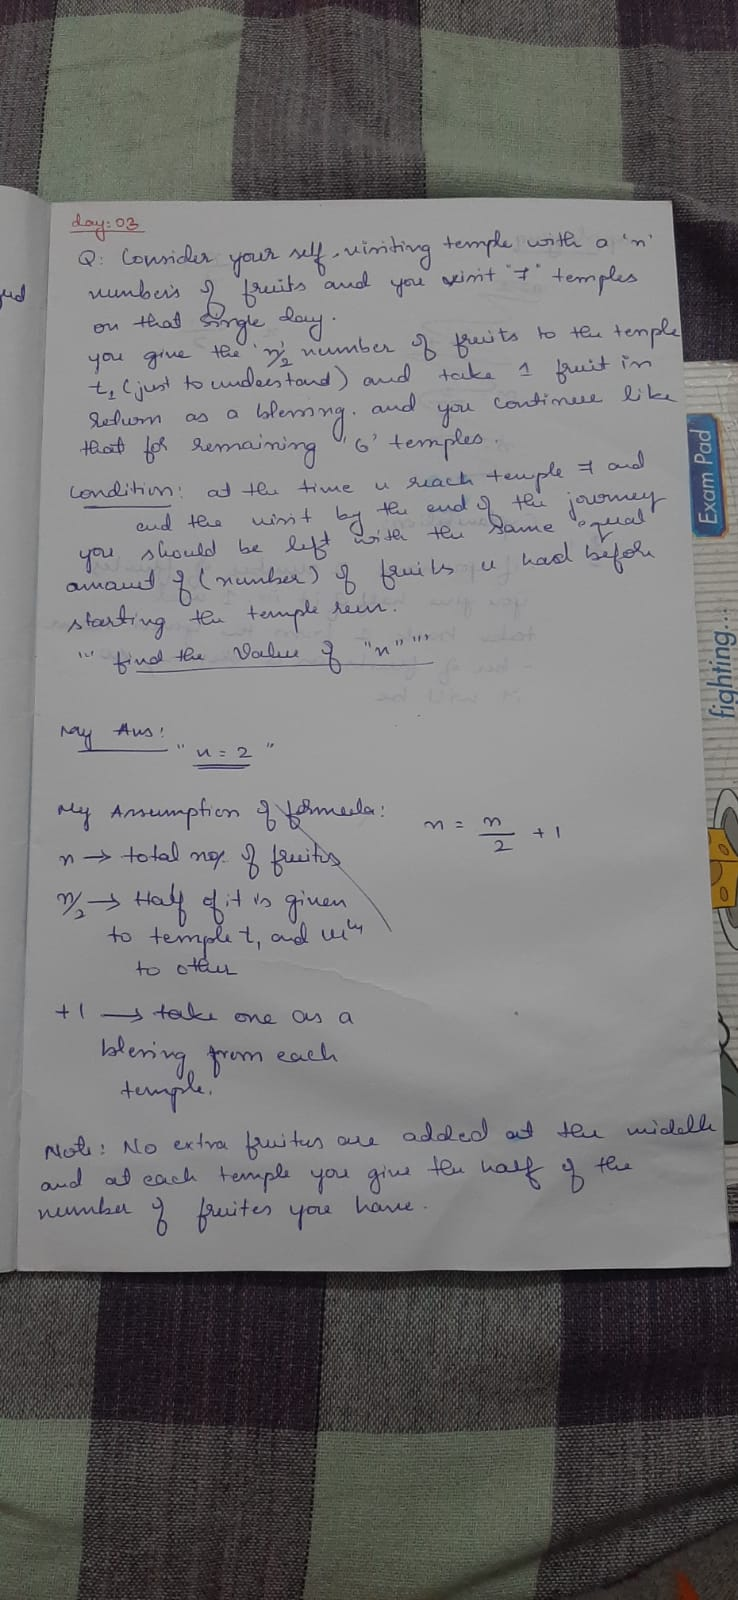 day: 03
Q: Consider your self, visiting temple with a 'n'
numbers of fruits and you visit "7" temples
on that single day.
you give the 'n/2' number of fruits to the temple
t1 (just to understand) and take 1 fruit in
return as a blessing. and you continue like
that for remaining '6' temples.
Condition: at the time u reach temple 7 and
end the visit by the end of the journey
you should be left with the same equal
amount of (number) of fruits u had before
starting the temple
"' find the Value of "n" "'
My Ans:
" n = 2 "
My Assumption of formula:
n = n/2 + 1
n → total no. of fruits
n/2 → Half of it is given
to temple t1 and
to other
+1 → take one as a
blessing from each
temple.
Note: No extra fruitus are added at the middle
and at each temple you give the half of the
number of fruites you have.
Exam Pad
fighting...